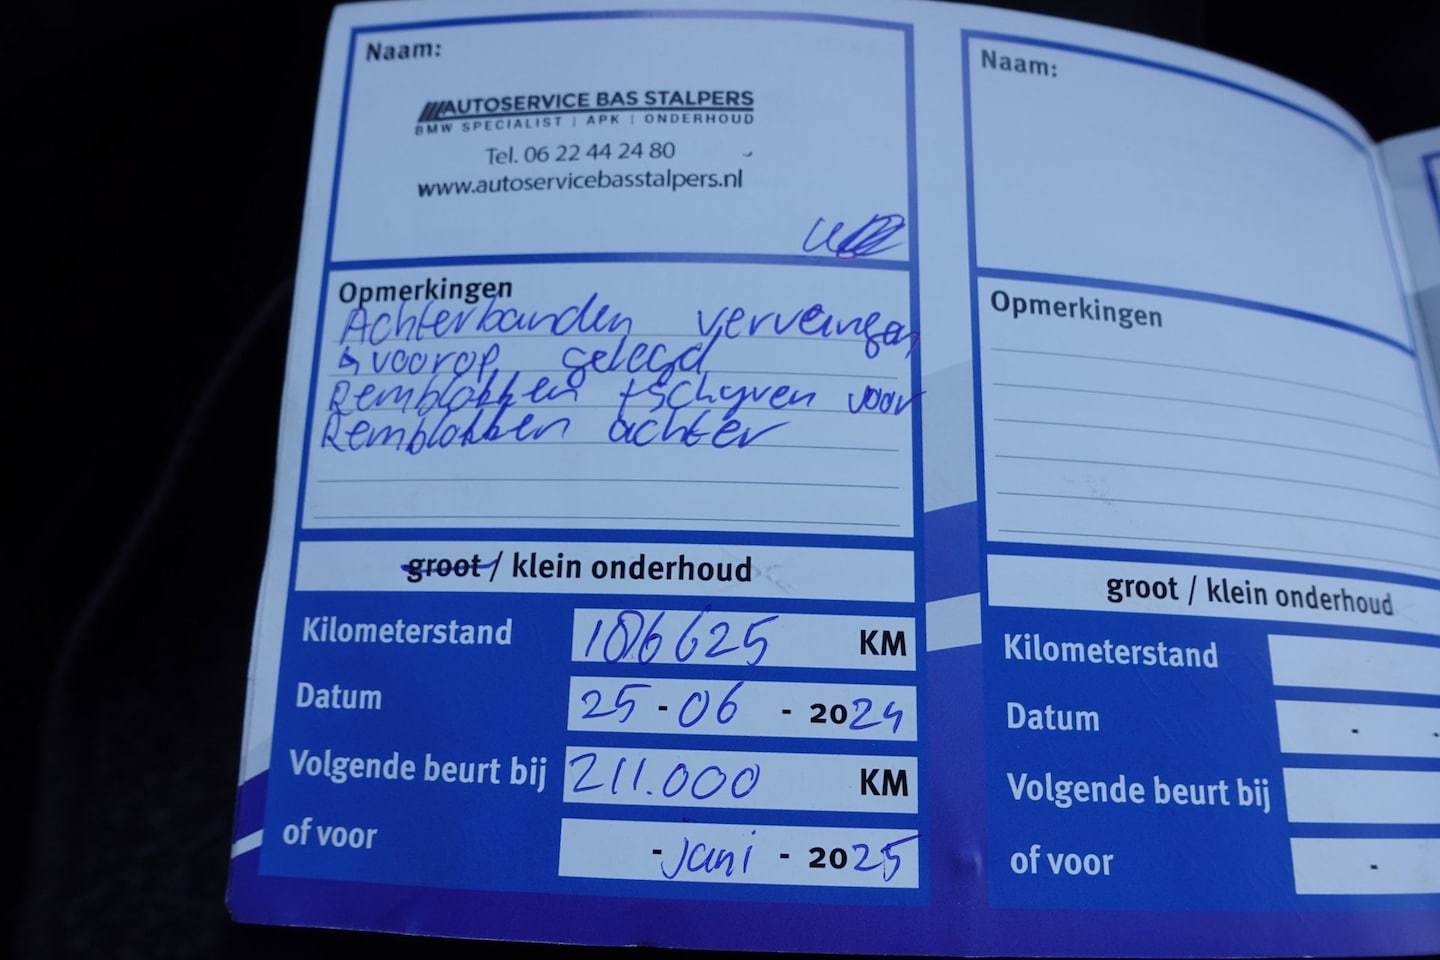 Naam:
AUTOSERVICE BAS STALPERS
BMW SPECIALIST | APK | ONDERHOUD
Tel. 06 22 44 24 80
www.autoservicebasstalpers.nl
Opmerkingen
Achterbanden vervangen
↳ voorop gelegd
Remblokken +schyven voor
Remblokken achter
groot / klein onderhoud
Kilometerstand 186625 KM
Datum 25 - 06 - 2024
Volgende beurt bij 211.000 KM
of voor - juni - 2025
Naam:
Opmerkingen
groot / klein onderhoud
Kilometerstand
Datum - -
Volgende beurt bij
of voor -